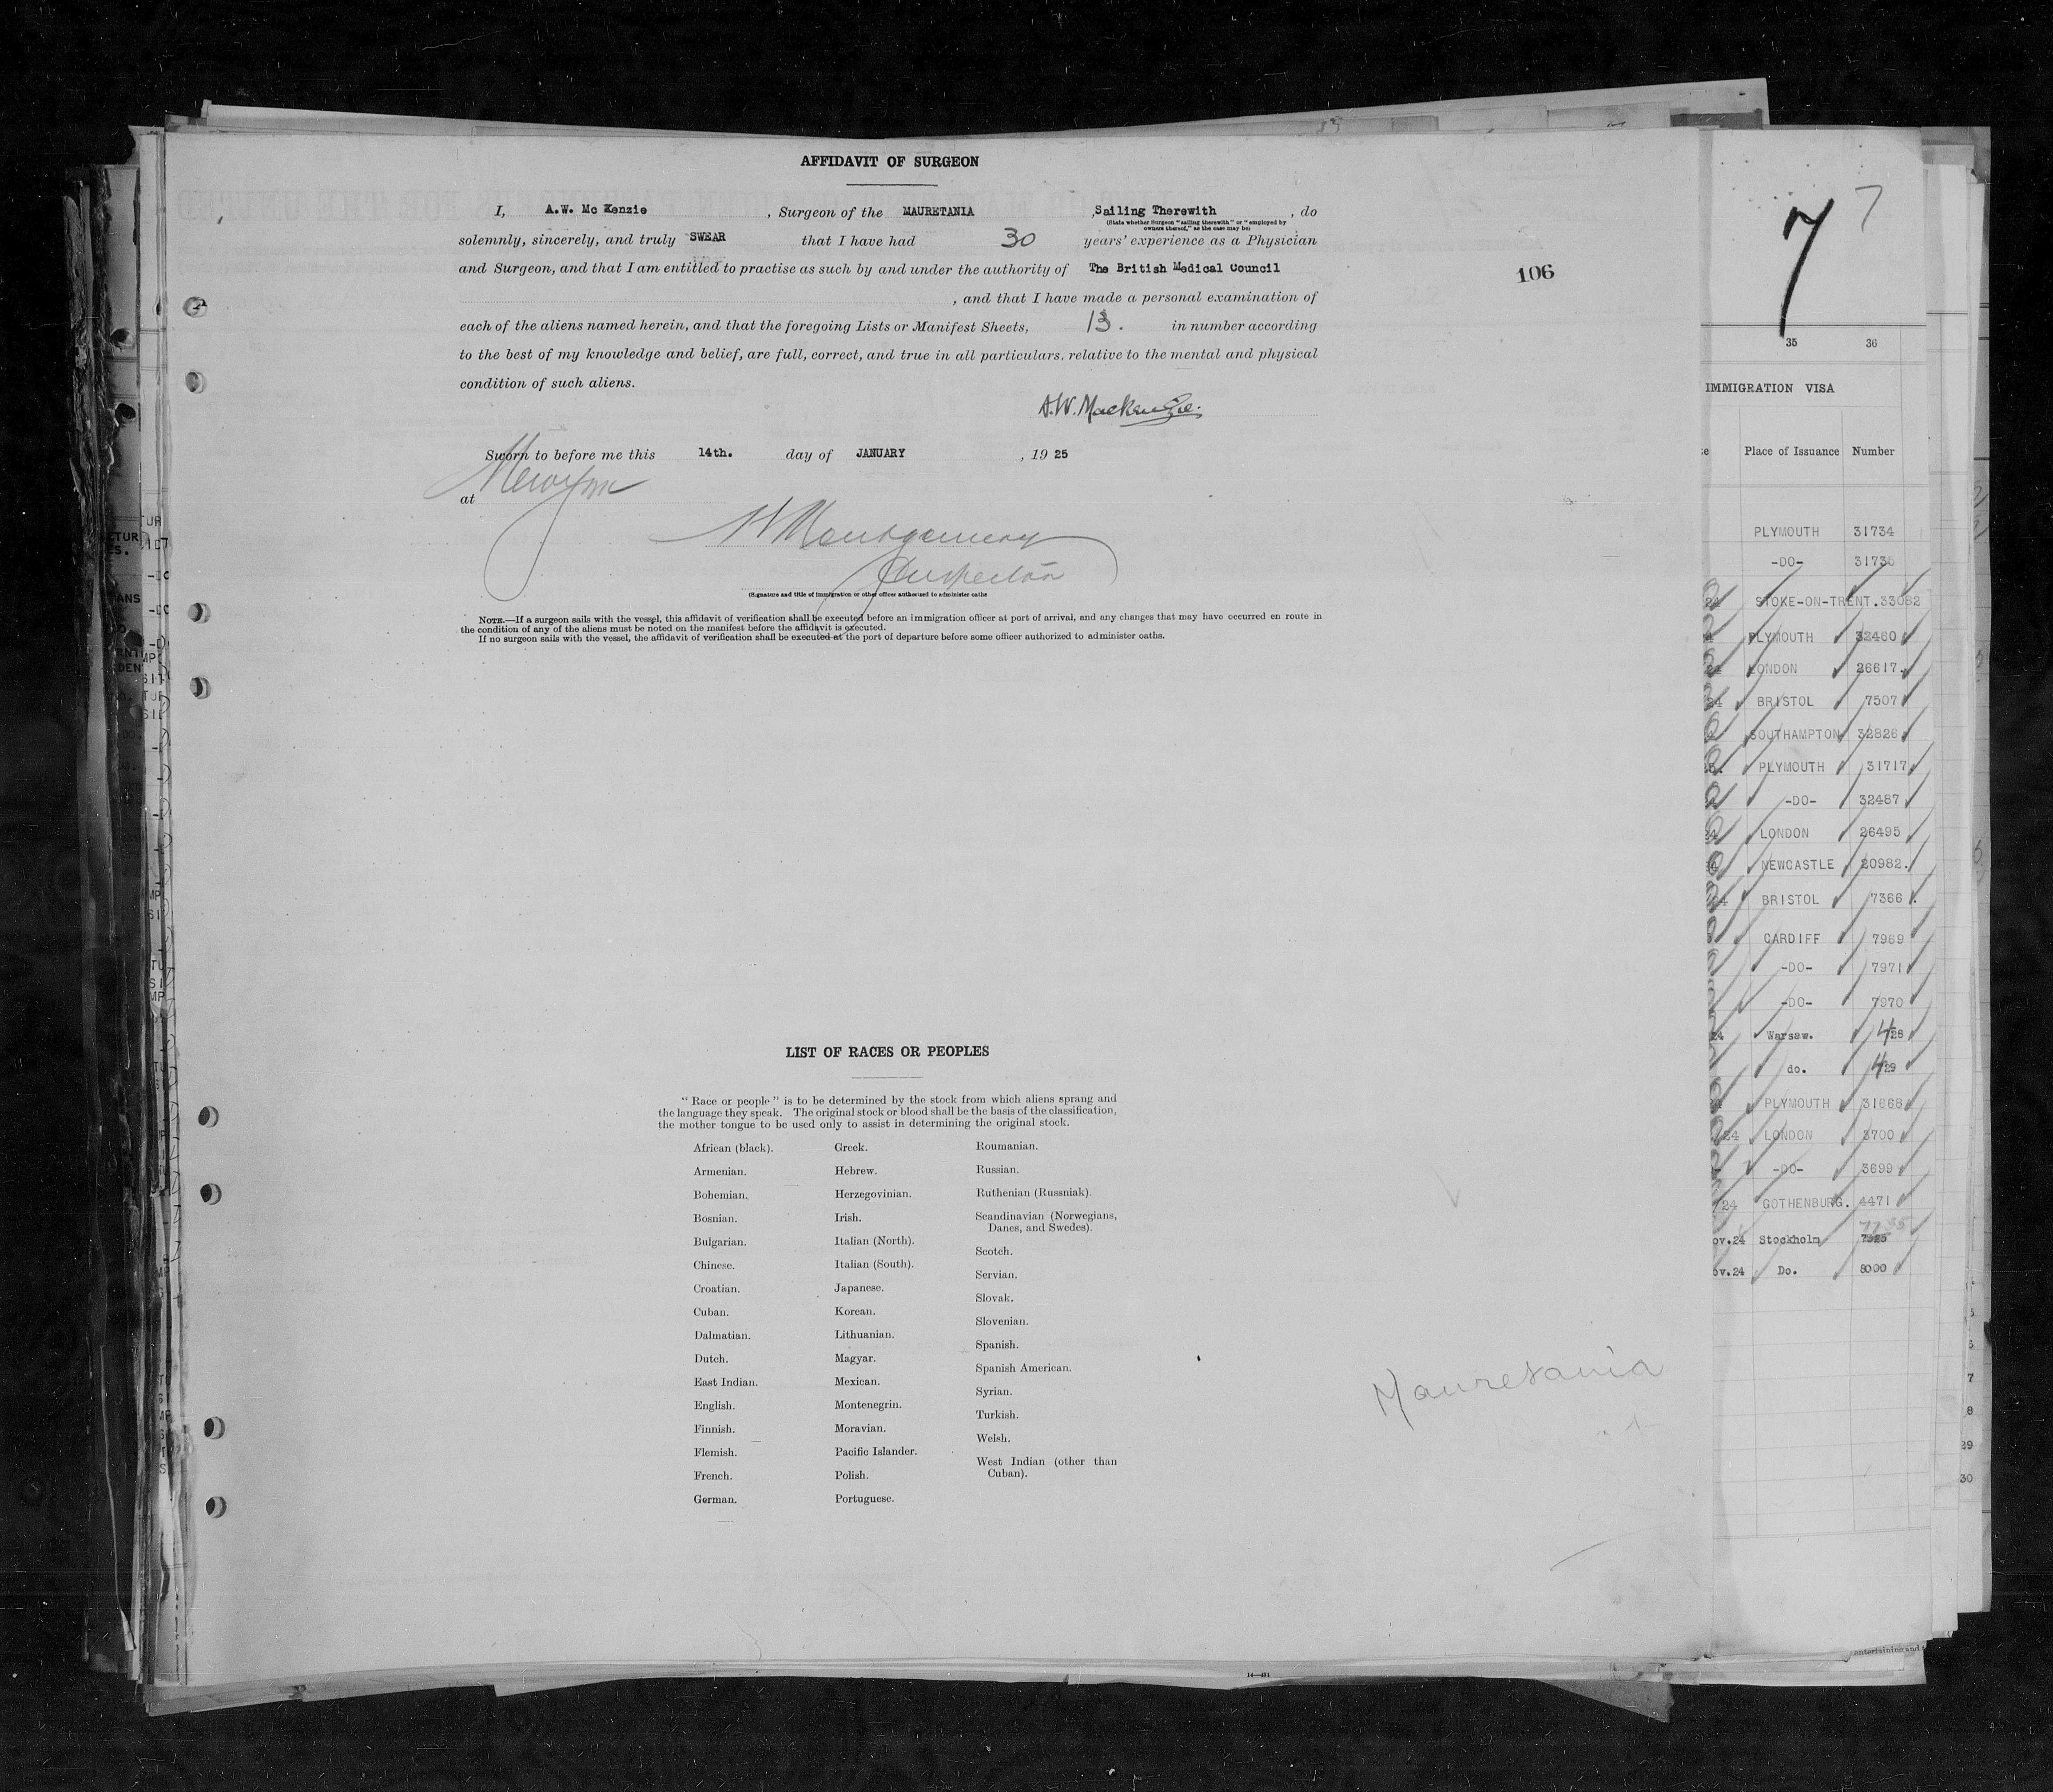 AFFIDAVIT OF SURGEON
I, A.W. Mc Kenzie , Surgeon of the MAURETANIA ,Sailing Therewith , do
(State whether Surgeon "sailing therewith" or "employed by
owners thereof," as the case may be)
solemnly, sincerely, and truly SWEAR that I have had 30 years' experience as a Physician
and Surgeon, and that I am entitled to practise as such by and under the authority of The British Medical Council
, and that I have made a personal examination of
each of the aliens named herein, and that the foregoing Lists or Manifest Sheets, 13. in number according
to the best of my knowledge and belief, are full, correct, and true in all particulars, relative to the mental and physical
condition of such aliens.
A.W. Mackenzie.
Sworn to before me this 14th. day of JANUARY , 19 25
at New York
H Montgomery
Inspector
(Signature and title of immigration or other officer authorized to administer oaths
NOTE.—If a surgeon sails with the vessel, this affidavit of verification shall be executed before an immigration officer at port of arrival, and any changes that may have occurred en route in
the condition of any of the aliens must be noted on the manifest before the affidavit is executed.
If no surgeon sails with the vessel, the affidavit of verification shall be executed at the port of departure before some officer authorized to administer oaths.
106
LIST OF RACES OR PEOPLES
"Race or people" is to be determined by the stock from which aliens sprang and
the language they speak. The original stock or blood shall be the basis of the classification,
the mother tongue to be used only to assist in determining the original stock.
African (black).
Armenian.
Bohemian.
Bosnian.
Bulgarian.
Chinese.
Croatian.
Cuban.
Dalmatian.
Dutch.
East Indian.
English.
Finnish.
Flemish.
French.
German.
Greek.
Hebrew.
Herzegovinian.
Irish.
Italian (North).
Italian (South).
Japanese.
Korean.
Lithuanian.
Magyar.
Mexican.
Montenegrin.
Moravian.
Pacific Islander.
Polish.
Portuguese.
Roumanian.
Russian.
Ruthenian (Russniak).
Scandinavian (Norwegians,
Danes, and Swedes).
Scotch.
Servian.
Slovak.
Slovenian.
Spanish.
Spanish American.
Syrian.
Turkish.
Welsh.
West Indian (other than
Cuban).
Mauretania
14—431
7 7
35 36
IMMIGRATION VISA
Place of Issuance Number
PLYMOUTH 31734
-DO- 31735
24 STOKE-ON-TRENT. 33082
PLYMOUTH 32460
LONDON 26617.
24 BRISTOL 7507
SOUTHAMPTON 32826
PLYMOUTH 31717
-DO- 32487
24 LONDON 26495
NEWCASTLE 20982.
BRISTOL 7366 .
CARDIFF 7969
-DO- 7971
-DO- 7970
24 Warsaw. 428
do. 429
24 PLYMOUTH 31668
24 LONDON 3700
-DO- 3699
/24 GOTHENBURG. 4471
ov.24 Stockholm
ov.24 Do. 8000
7
8
29
30
entertaining and